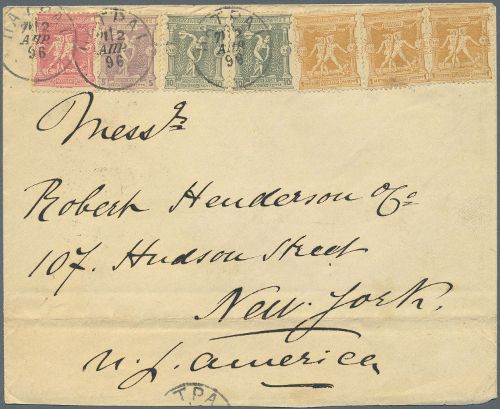 ΠΑΤΡΑΙ
12
ΑΠΡ
96
ΠΑΤΡΑΙ
12
ΑΠΡ
96
ΤΡΑΙ
12
96
5
10
10
1
1
1
Messrs
Robert Henderson & Co
107. Hudson Street
New York.
U.S. America
ΤΡΑ